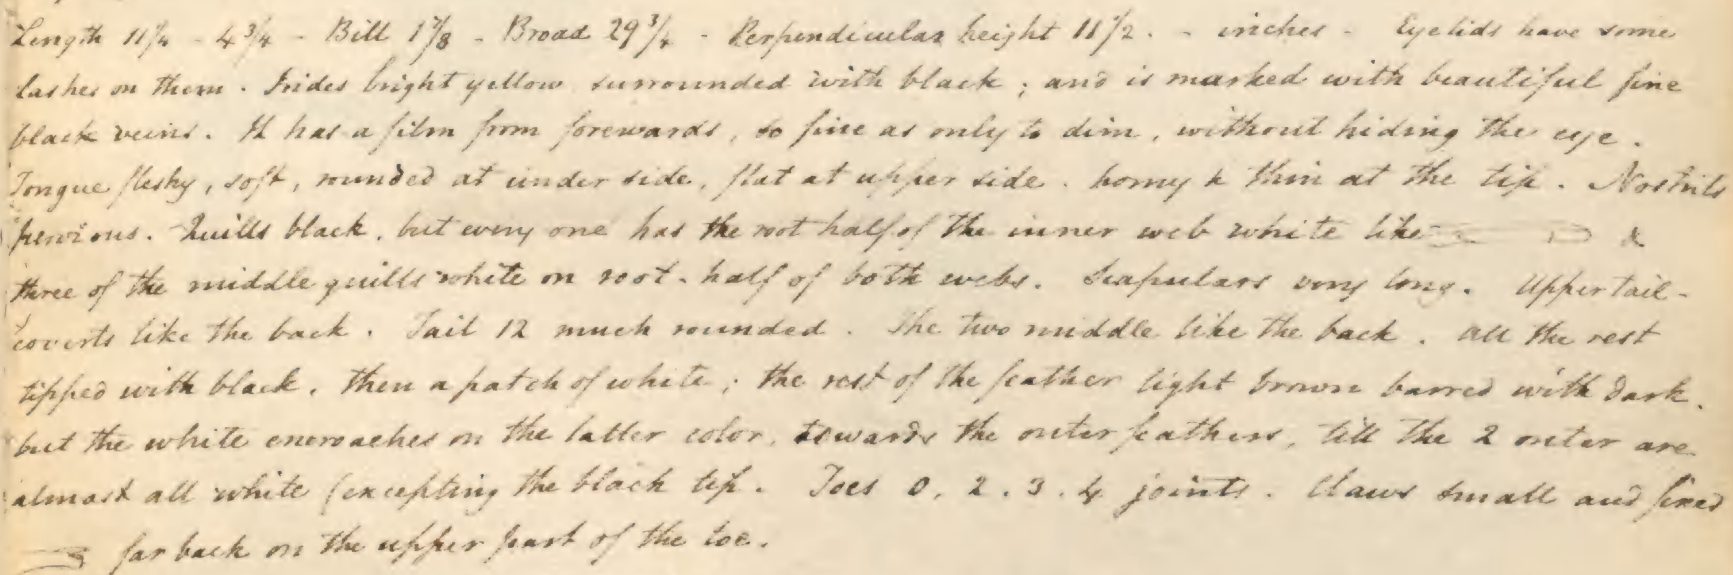 Length 11 1/4 - 4 3/4 - Bill 1 7/8 - Broad 29 3/4 - Perpendicular height 11 1/2. - inches - Eyelids have some
lashes on them. Irides bright yellow surrounded with black; and is marked with beautiful fine
black veins. It has a film from forewards, so fine as only to dim, without hiding the eye.
Tongue fleshy, soft, rounded at under side, flat at upper side. horny & thin at the tip. Nostrils
pervious. Quills black, but every one has the root half of the inner web white like &
three of the middle quills white on root-half of both webs. Scapulars very long. Upper tail-
coverts like the back. Tail 12 much rounded. The two middle like the back. All the rest
tipped with black, then a patch of white; the rest of the feather light brown barred with dark.
but the white encroaches on the latter color, towards the outer feathers, till the 2 outer are
almost all white (excepting the black tip. Toes 0. 2. 3. 4 joints. Claws small and fixed
far back on the upper part of the toe.